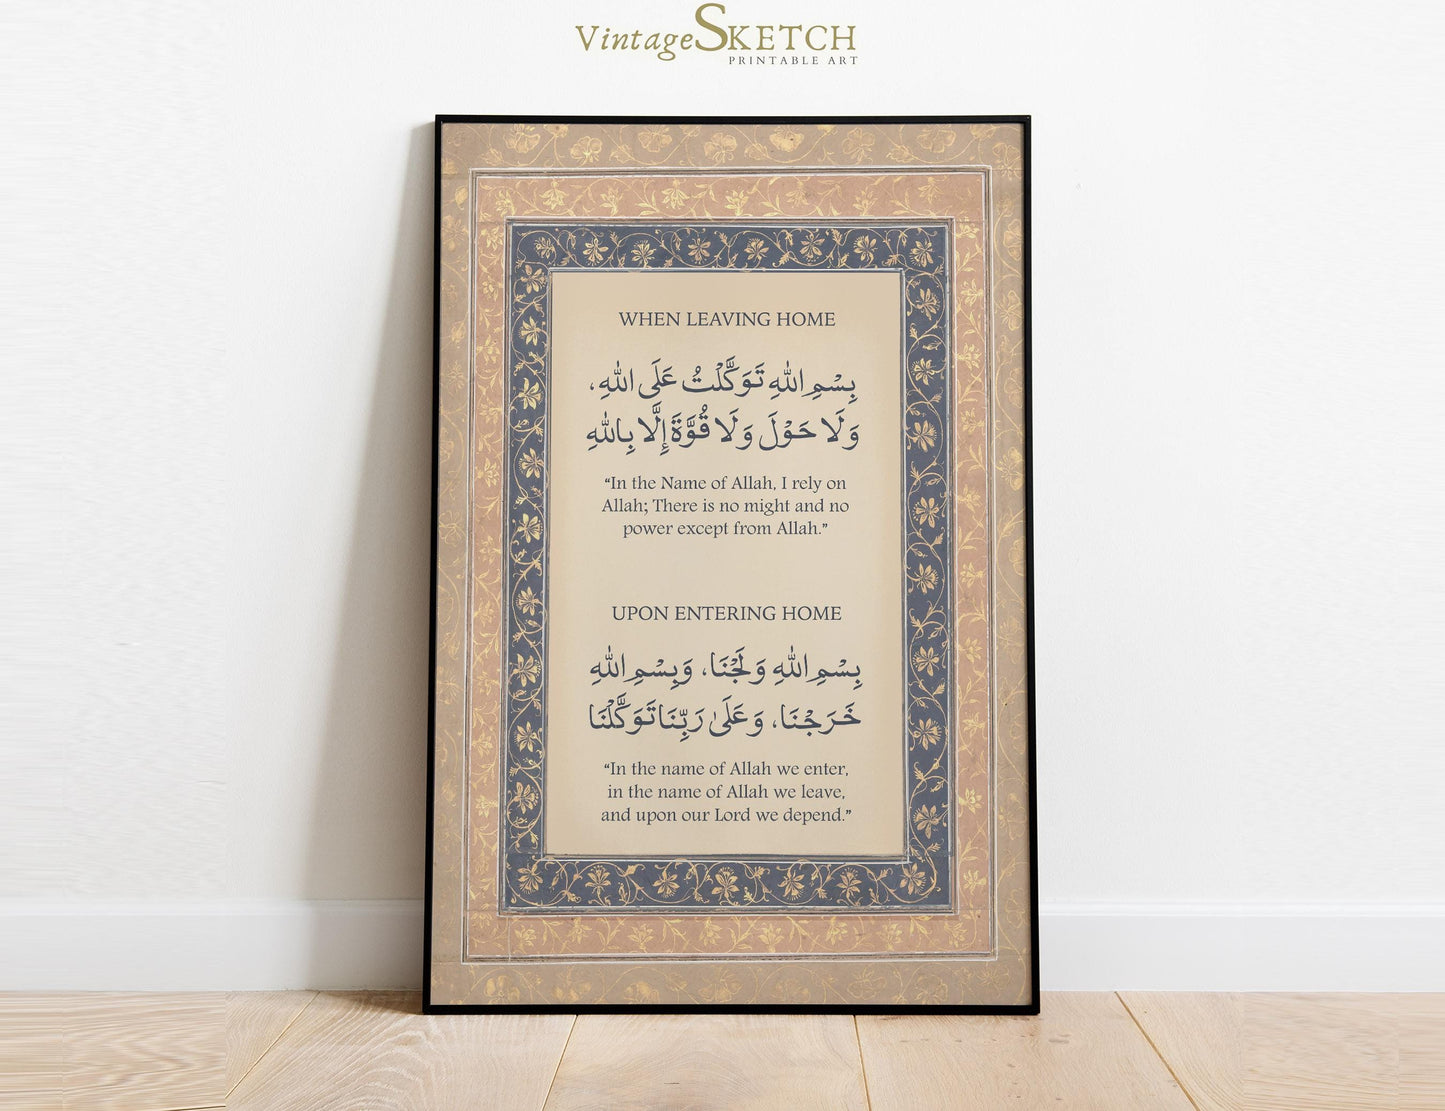 VintageSKETCH
PRINTABLE ART
WHEN LEAVING HOME
بِسْمِ اللهِ تَوَكَّلْتُ عَلَى اللهِ،
وَلَا حَوْلَ وَلَا قُوَّةَ إِلَّا بِاللهِ
“In the Name of Allah, I rely on
Allah; There is no might and no
power except from Allah.”
UPON ENTERING HOME
بِسْمِ اللهِ وَلَجْنَا، وَبِسْمِ اللهِ
خَرَجْنَا، وَعَلَىٰ رَبِّنَا تَوَكَّلْنَا
“In the name of Allah we enter,
in the name of Allah we leave,
and upon our Lord we depend.”